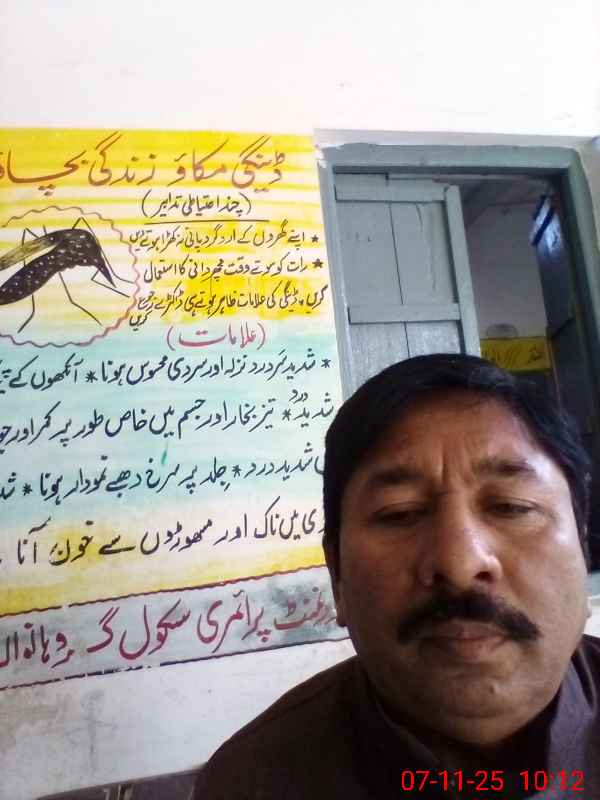 ڈینگی مکاؤ زندگی بچاؤ
(چند احتیاطی تدابیر)
* اپنے گھروں کے ارد گرد پانی نہ کھڑا ہونے دیں
* رات کو سوتے وقت مچھر دانی کا استعمال
کریں * ڈینگی کی علامات ظاہر ہوتے ہی ڈاکٹر سے رجوع
کریں
(علامات)
* شدید سر درد نزلہ اور سردی محسوس ہونا * آنکھوں کے
شدید درد * تیز بخار اور جسم میں خاص طور پر کمر اور
شدید درد * جلد پر سرخ دھبے نمودار ہونا *
میں ناک اور مسوڑوں سے خون آنا
پرائمری سکول
07-11-25 10:12